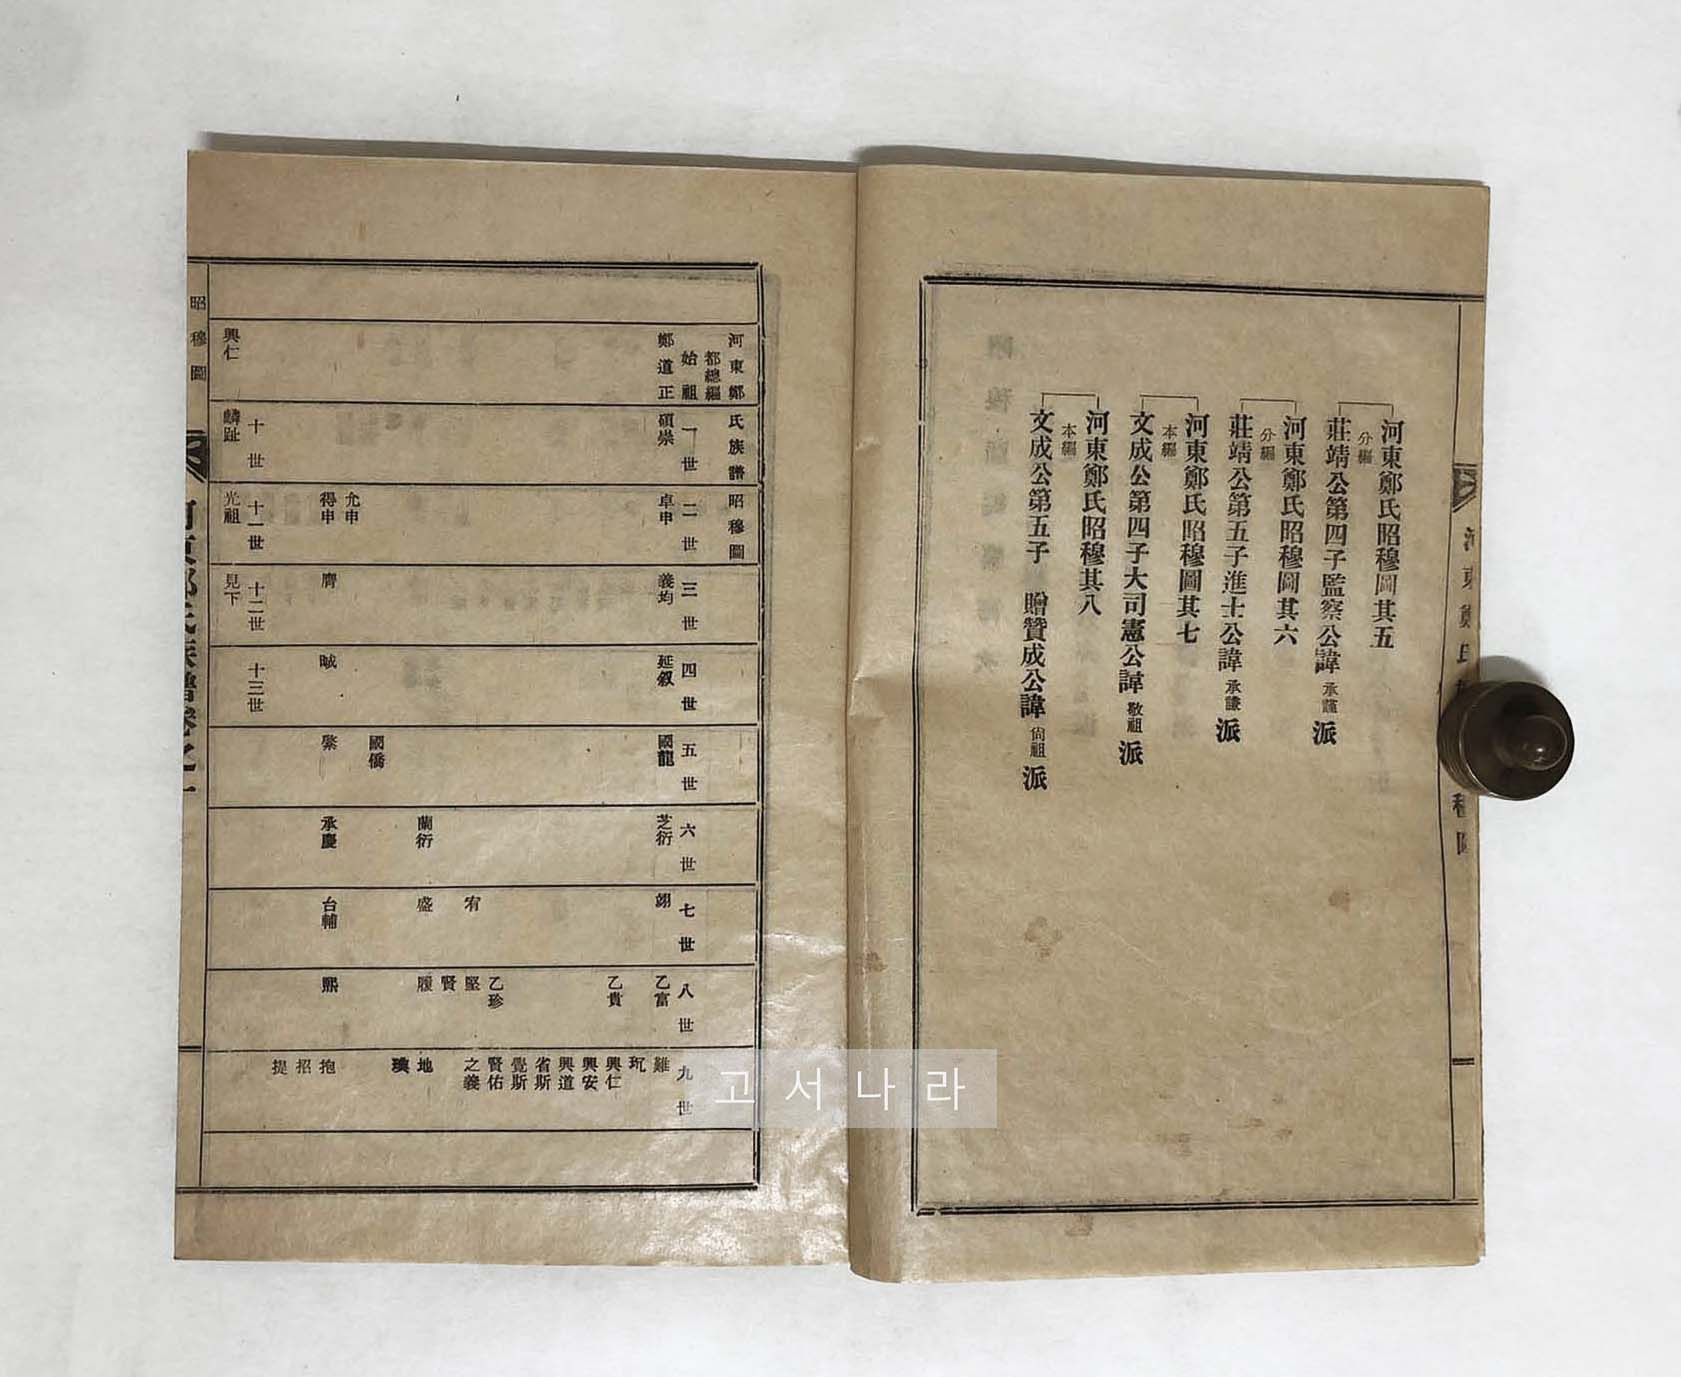 河東鄭氏昭穆圖其五
分編
莊靖公第四子監察公諱 承謹 派
河東鄭氏昭穆圖其六
分編
莊靖公第五子進士公諱 承謙 派
河東鄭氏昭穆圖其七
本編
文成公第四子大司憲公諱 敬祖 派
河東鄭氏昭穆其八
本編
文成公第五子 贈贊成公諱 尙祖 派
河東鄭氏族譜昭穆圖
都總編
始祖 一世 二世 三世 四世 五世 六世 七世 八世 九世
鄭道正 碩崇 卓申 義均 延叙 國龍 芝衍 翊 乙富 難
玧
乙貴 興仁
興安
興道
省斯
覺斯
乙珍 賢佑
宥 堅 之義
賢
蘭衍 盛 履 地
璜
國僑
允申
得申 膺 㻽 繁 承慶 台輔 熙 抱
招
提
十世 十一世 十二世 十三世
興仁 麟趾 光祖 見下
昭穆圖
河東鄭氏族譜卷之一
고서나라